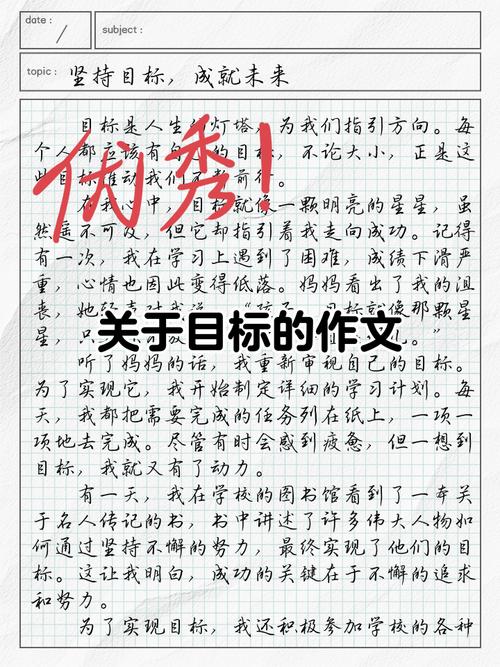 date :
subject :
topic : 坚持目标，成就未来
优秀！
目标是人生灯塔，为我们指引方向。每
个人都应该有的目标，不论大小，正是这
些目标推动我们前行。
在我心中，目标就像一颗明亮的星星，虽
然遥不可及，但它却指引着我走向成功。记得
有一次，我在学习上遇到了困难，成绩下滑严
重，心情也因此变得低落。妈妈看出了我的沮
丧，她
那颗星
星，只
关于目标的作文
听了妈妈的话，我重新审视自己的目标。
为了实现它，我开始制定详细的学习计划。每
天，我都把需要完成的任务列在纸上，一项一
项地去完成。尽管有时会感到疲惫，但一想到
目标，我就又有了动力。
有一天，我在学校的图书馆看到了一本关
于名人传记的书，书中讲述了许多伟大人物如
何通过坚持不懈的努力，最终实现了他们的目
标。这让我明白，成功的关键在于不懈的追求
和努力。
为了实现目标，我还积极参加学校的各种